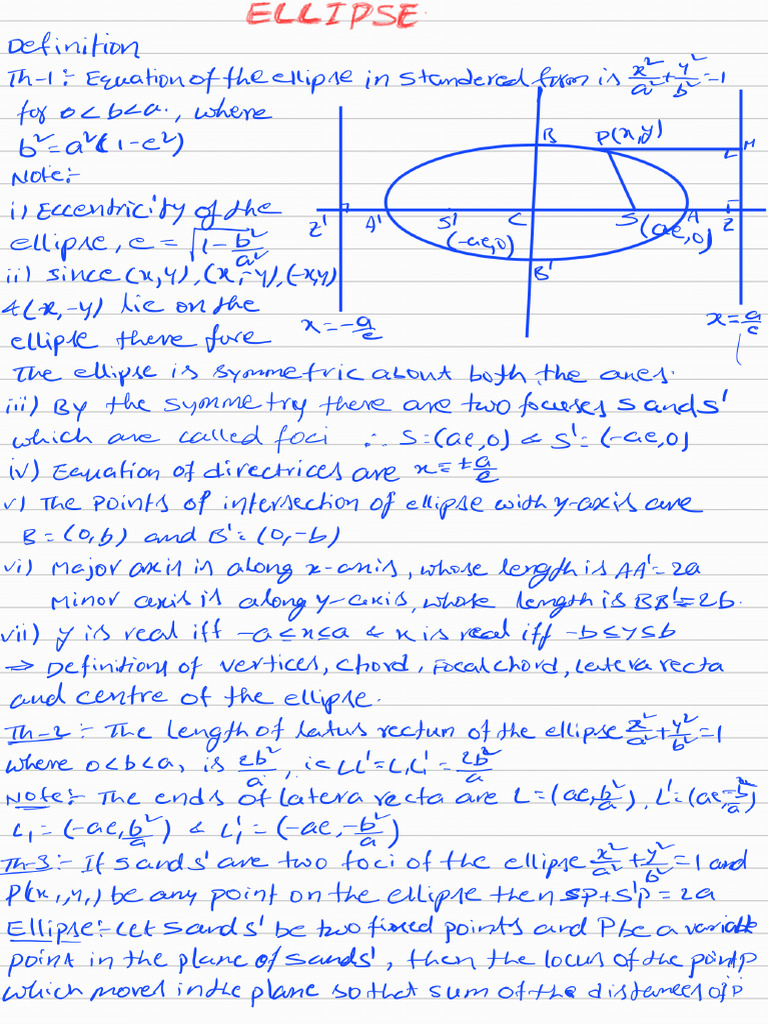 ELLIPSE
Definition
Th-1:- Equation of the ellipse in standered form is x²/a²+y²/b²=1
for 0<b<a., where
b²=a²(1-e²)
Note:-
i) Eccentricity of the
ellipse, e = √(1-b²/a²)
ii) since (x,y), (x,-y), (-x,y)
&(x,-y) lie on the
ellipse there fore
B
P(x,y)
M
Z'
A'
S'
(-ae,0)
C
S(ae,0)
A
Z
B'
x=-a/e
x=a/e
The ellipse is symmetric about both the axes.
iii) By the symmetry there are two focuses S and S'
which are called foci ∴ S=(ae,0) & S'=(-ae,0)
iv) Equation of directrices are x=±a/e
v) The points of intersection of ellipse with y-axis are
B=(0,b) and B'=(0,-b)
vi) Major axis is along x-axis, whose length is AA'=2a
Minor axis is along y-axis, whose length is BB'=2b.
vii) y is real iff -a≤x≤a & x is real iff -b≤y≤b
→ Definitions of vertices, chord, Focal chord, latera recta
and centre of the ellipse.
Th-2:- The length of latus rectum of the ellipse x²/a²+y²/b²=1
where 0<b<a, is 2b²/a, ie LL'=L₁L₁'=2b²/a
Note:- The ends of latera recta are L=(ae,b²/a), L'=(ae,-b²/a)
L₁=(-ae,b²/a) & L₁'=(-ae,-b²/a)
Th-3:- If S and S' are two foci of the ellipse x²/a²+y²/b²=1 and
P(x₁,y₁) be any point on the ellipse then SP+S'P=2a
Ellipse:- Let S and S' be two fixed points and P be a variable
point in the plane of S and S', then the locus of the point P
which moves in the plane so that sum of the distances of P